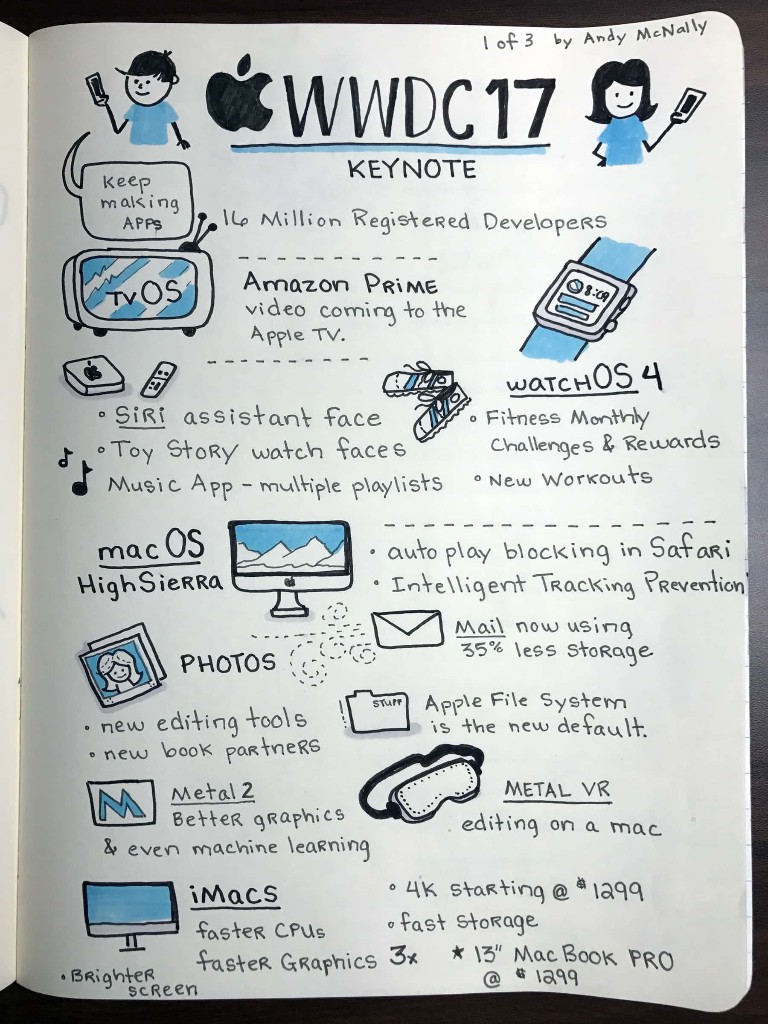 1 of 3 by Andy McNally
WWDC17
KEYNOTE
Keep
making
APPs
16 Million Registered Developers
tvOS
Amazon Prime
video coming to the
Apple TV.
8:09
watchOS 4
• Siri assistant face
• Toy Story watch faces
Music App - multiple playlists
• Fitness Monthly
Challenges & Rewards
• New Workouts
macOS
High Sierra
• auto play blocking in Safari
• Intelligent Tracking Prevention
Mail now using
35% less storage
PHOTOS
• new editing tools
• new book partners
STUFF
Apple File System
is the new default.
M
Metal 2
Better graphics
& even machine learning
METAL VR
editing on a mac
iMacs
faster CPUs
faster Graphics 3x
• Brighter
screen
• 4K starting @ $1299
• fast storage
★ 13" MacBook PRO
@ $1299